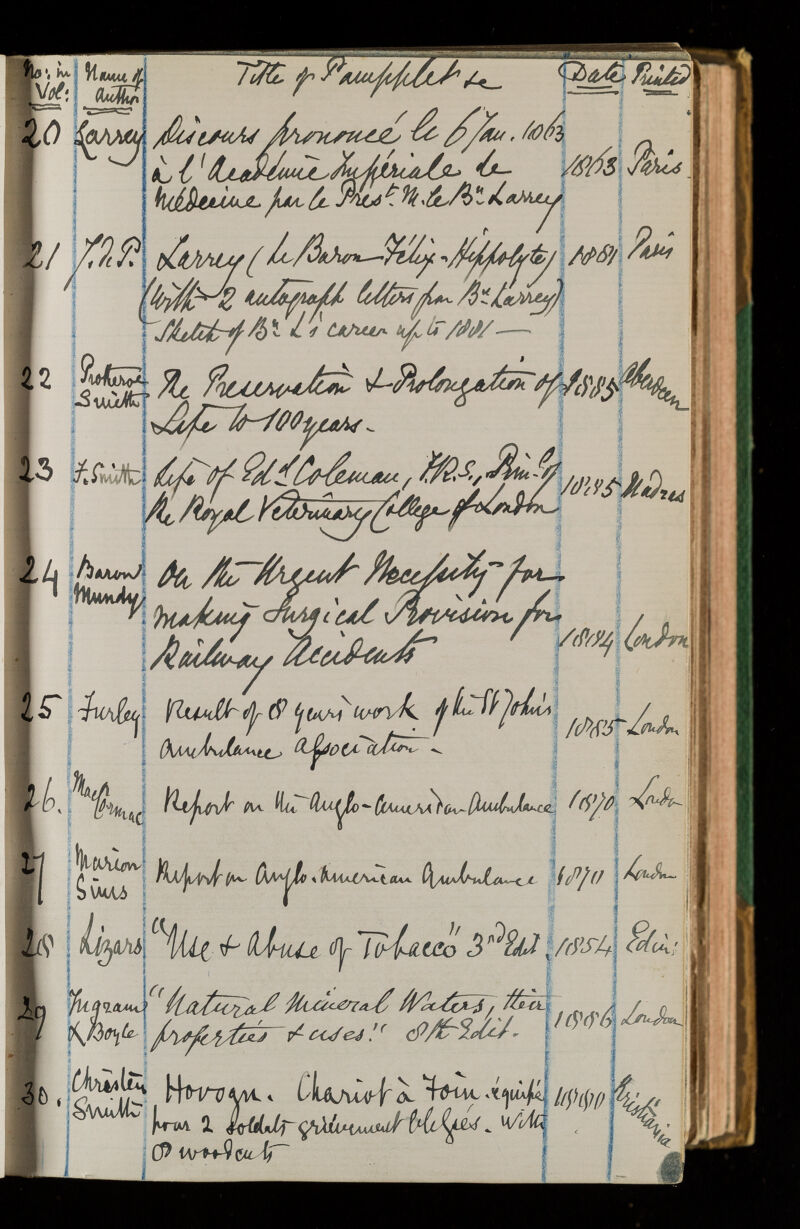 No: in Vol: Name of Author Title of Pamphlet &c Date Printed
20 Larrey Discours prononcé le 6 Jan. 1863
à l'Académie Impériale de 1863 Paris
Médecine par le Prest. M. le Bn. Larrey
21 Larrey (Le Baron Félix-Hippolyte) 1881 Paris
(With 2 autograph letters from Bn. Larrey)
Sketch of Bn. L's career up to 1881 —
22 Protheroe Smith The Preservation & Prolongation of 1885 Aberdeen
Life to 100 years -
23 F. Smith Life of Edd Coleman, F.R.S., Prinl. of
the Royal Veterinary College of London Madras
24 Baron Mundy On the Urgent Necessity for
making Surgical Provision for
Railway Accidents London
25 Furley Result of 8 years' work of the St John's
Ambulance Association - 1885 London
26. MacCormac Report on the Anglo-American Ambulance 1870 London
27 Marion Sims Report on Anglo-American Ambulance 1870 London
28 Lizars "Use & Abuse of Tobacco" 3rd Edit. 1854 Edin:
29 Ingram & Boyle "Natural Mineral Waters, their
properties & uses." 8th Edit. 1886 London
30. Christen Smith Chariot à Foin équipé Kristiania
pour 2 soldats grièvement blessés. With
8 woodcuts